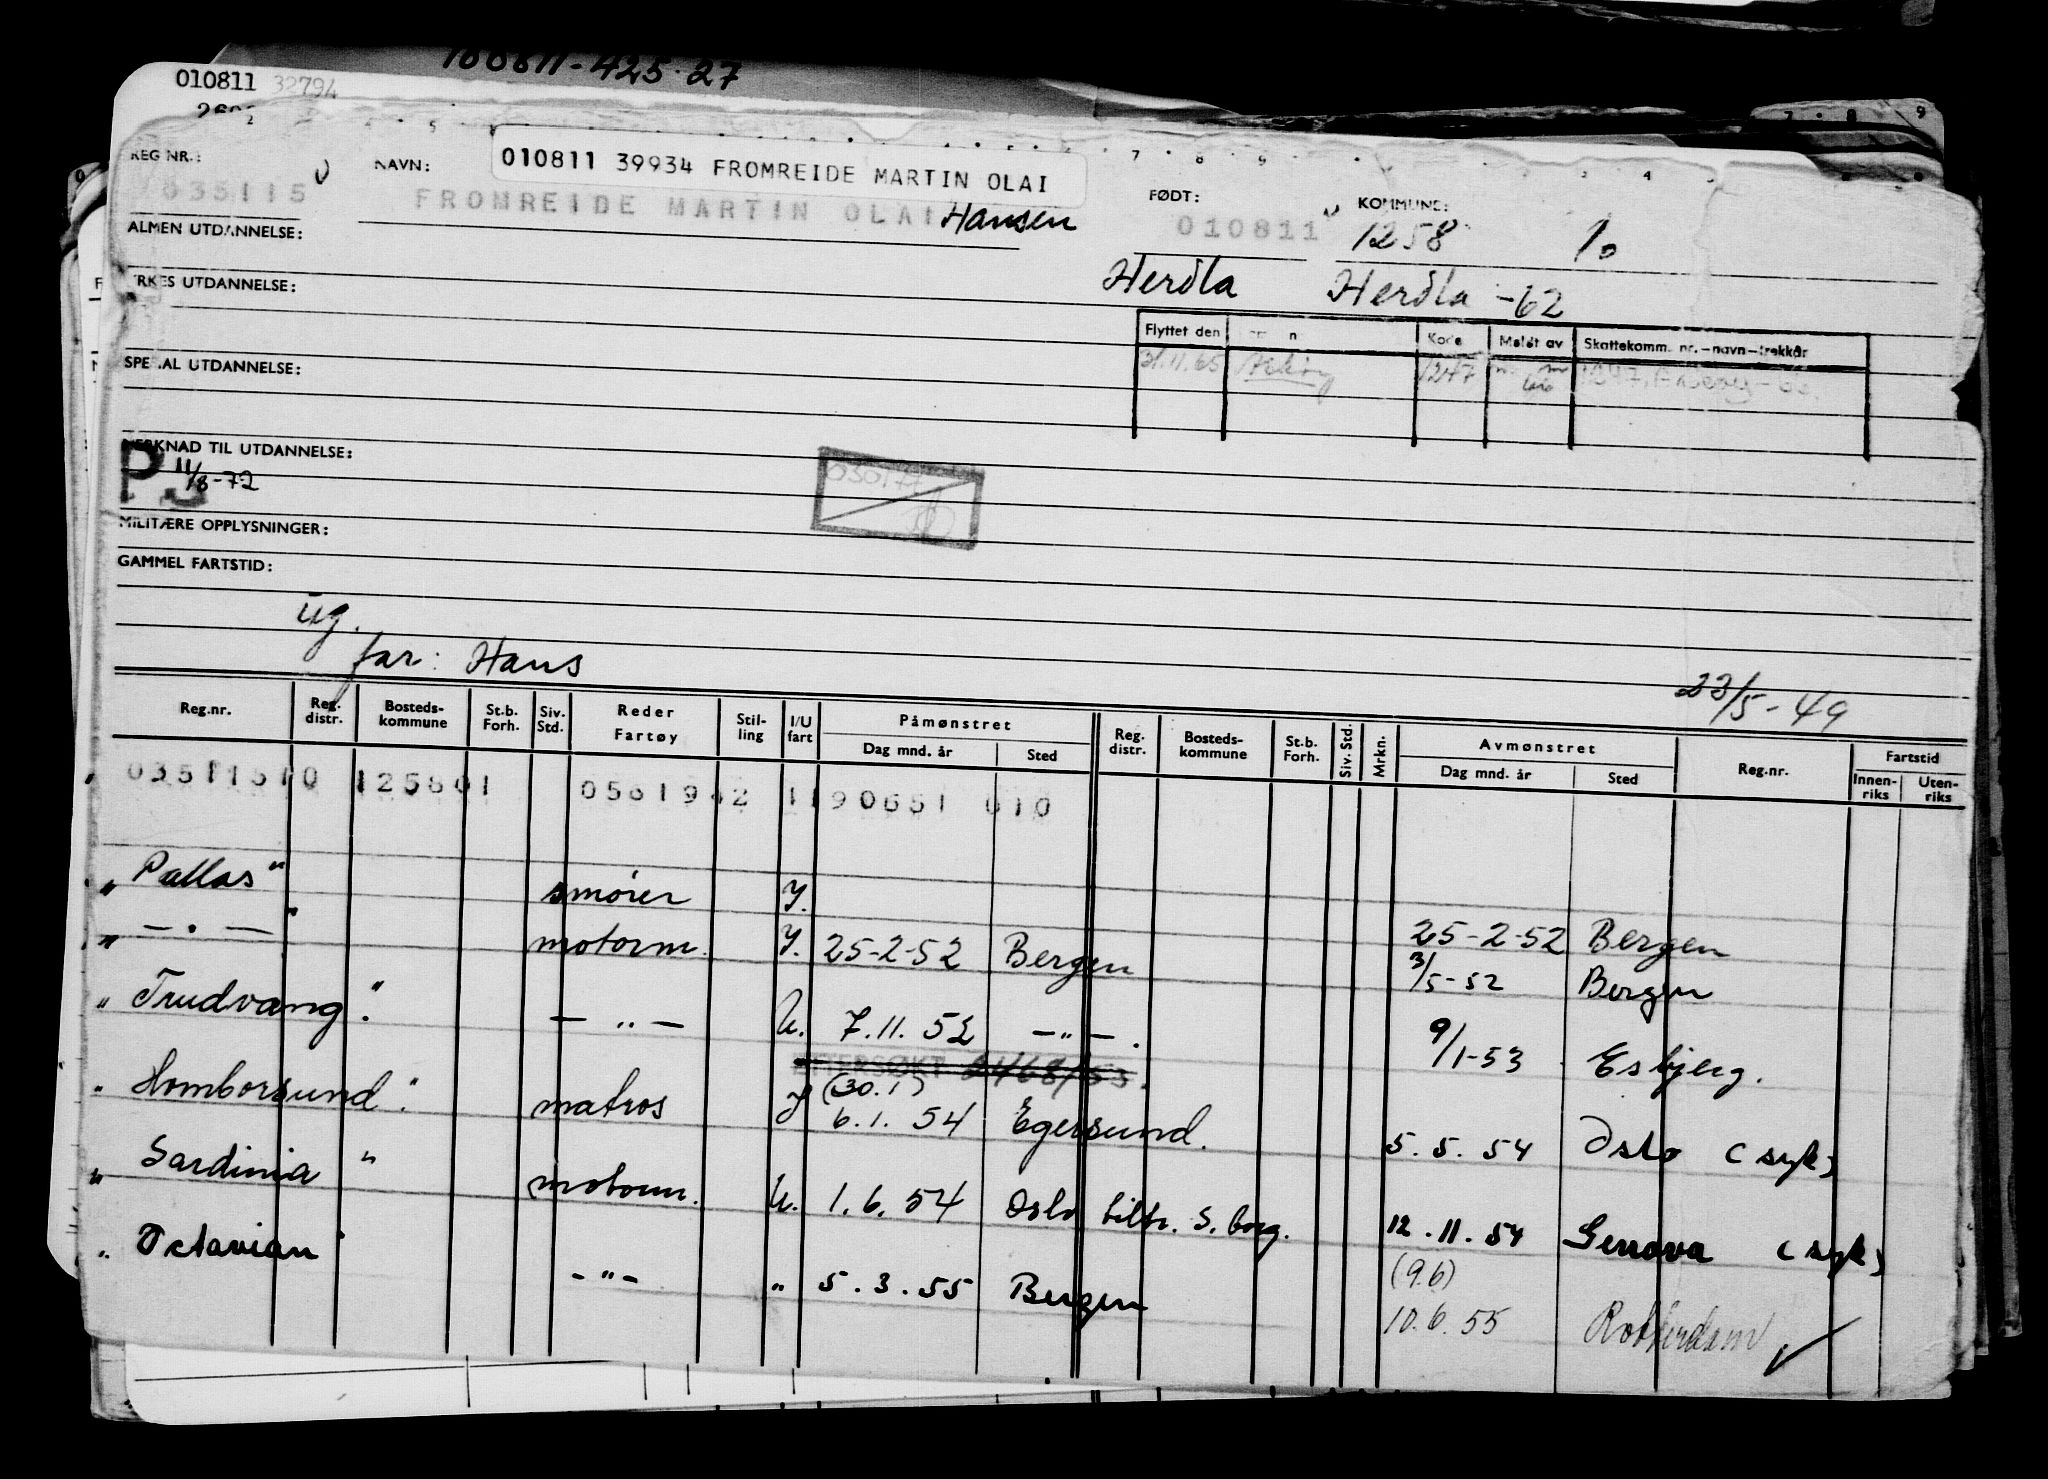 100811-425.27
010811 32794
7 . 8 9
REG NR.:
035115
NAVN:
010811 39934 FROMREIDE MARTIN OLAI
FROMREIDE MARTIN OLAI Hansen
FØDT:
010811
KOMMUNE:
1258 10
Herdla Herdla -62
ALMEN UTDANNELSE:
RKES UTDANNELSE:
Flyttet den Kode Meldt av Skattekomm. nr.-navn-trekkår
31.11.65 Askøy 1247 1247 Askøy
SPE AL UTDANNELSE:
MERKNAD TIL UTDANNELSE:
11/8-72
030177
MILITÆRE OPPLYSNINGER:
GAMMEL FARTSTID:
ug.
far: Hans
23/5-49
Reg.nr. Reg. distr. Bosteds-kommune St.b. Forh. Siv. Std. Reder Fartøy Stil-ling I/U fart Påmønstret Dag mnd. år Sted Reg. distr. Bosteds-kommune St.b. Forh. Siv. Std. Mrkn. Avmønstret Dag mnd. år Sted Reg.nr. Fartstid Innen-riks Uten-riks
03511510 125801 0561942 1190651 010
"Pallas" smører I. 25-2-52 Bergen
" — . — " motorm. I. 25-2-52 Bergen 3/5-52 Bergen
"Trudvang". — " — U. 7.11.52 — " — . 9/1-53 Esbjerg.
ETTERSØKT 2468/53.
(30.1)
"Homborsund". matros I 6.1.54 Egersund. 5.5.54 Oslo (syk)
"Sardinia" motorm. U. 1.6.54 Oslo tiltr. S.borg. 12.11.54 Genova (syk)
(9.6)
"Octavian" - " - " 5.3.55 Bergen 10.6.55 Rotterdam